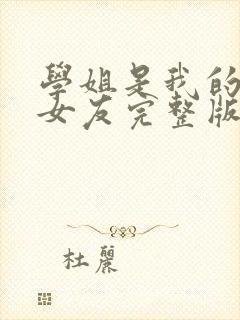 學姐是我的
女友完整版
杜麗